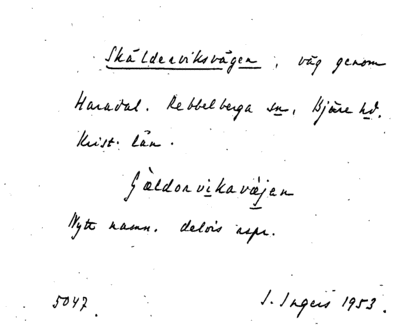 Skälderviksvägen, väg genom
Haradal. Rebbelberga sn, Bjäre hd.
Krist. län.
Nytt namn. delvis rspr.
5047. I. Ingers 1953.